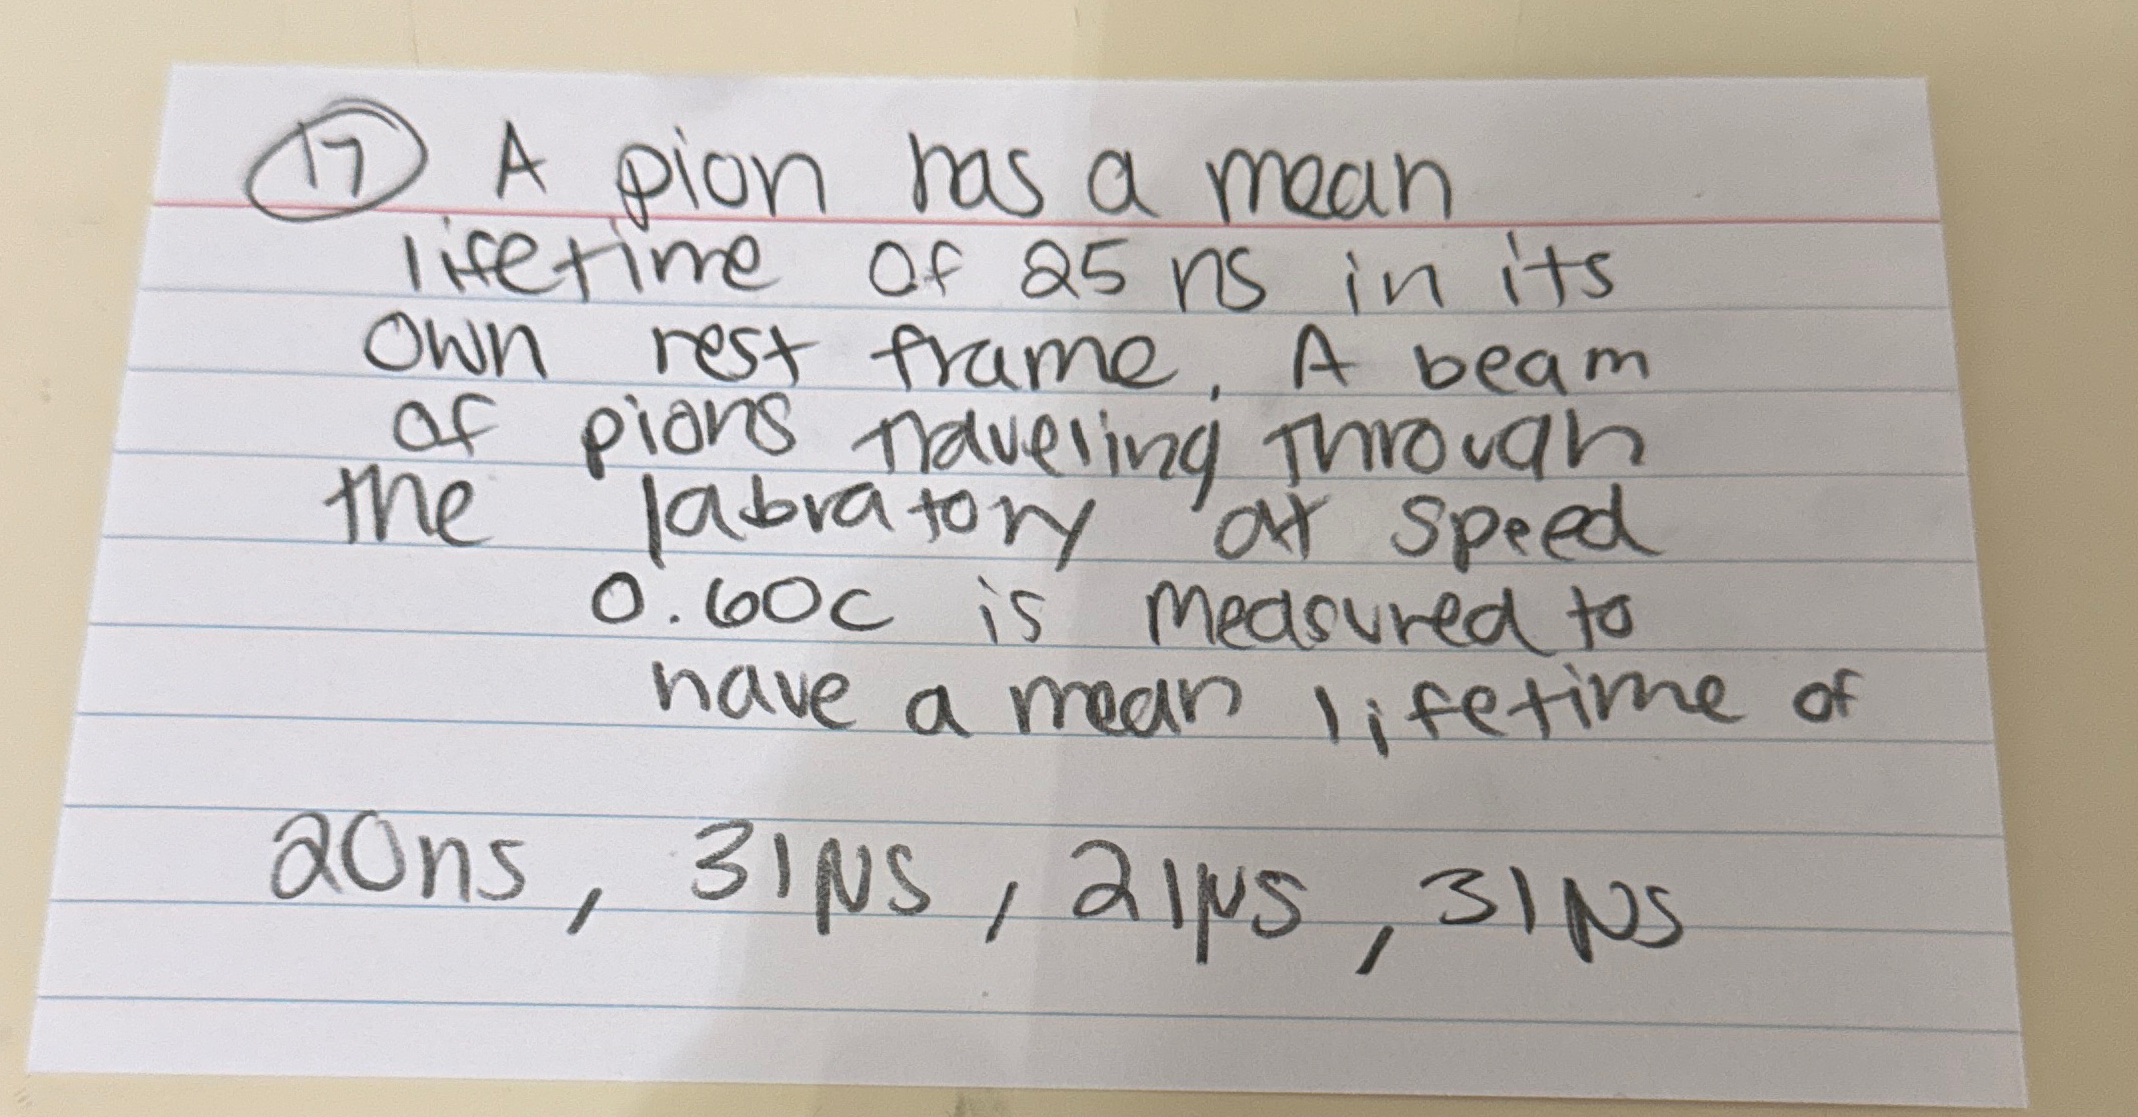 17 A pion has a mean
lifetime of 25 ns in its
own rest frame. A beam
of pions traveling through
the labratory at speed
0.60c is measured to
have a mean lifetime of
20ns, 31μs, 21μs, 31μs